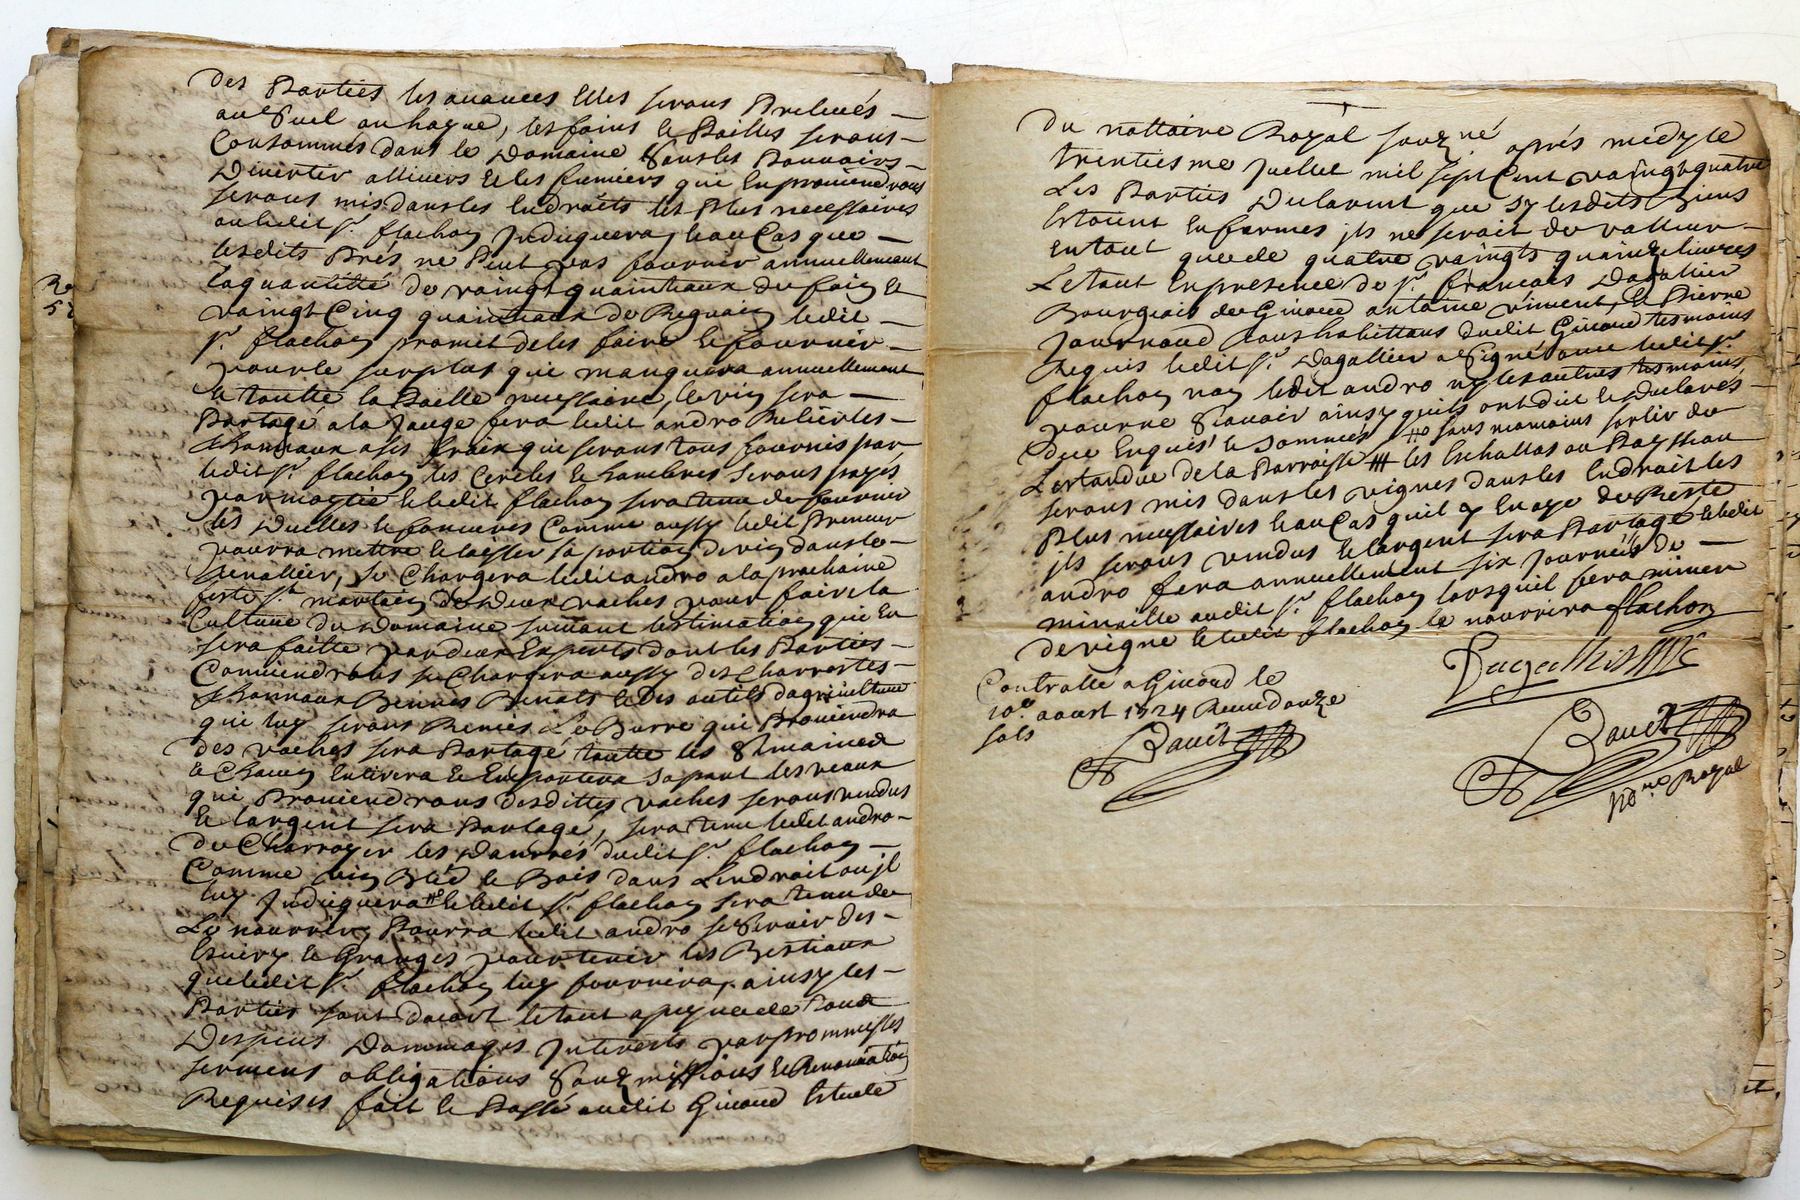 des Parties les avances Elles seront Prelevés
au Suel ou hayne, les foins & Pailles seront
Consommés dans le Domaine Sans les Pouvoirs
Divertir allieurs & les fumiers qui En proviendront
seront mis dans les Endroits les Plus necessaires
ou ledit Sr. flachon Indiquera, & au Cas que
lesdits Prés ne Peut pas fournir annuellement
la quantitté de vaingt quaintaux de foin &
vaingt Cinq quaintaux de Revain ledit
Sr. flachon promet de les faire & fournir
pour le surplus qui manquera annuellement
& toutte la Paille necessaire, le vin sera
Partagé a la Jauge fera ledit andro Relier les
thonneaux a ses fraix qui seront tous fournis par
ledit Sr. flachon les Cercles & hambres seront payés
par moytié & ledit flachon sera tenu de fournir
les Duelles & foncures Comme aussy ledit Preneur
pourra mettre & laisser sa portion de vin dans le
Cenallier, se Chargera ledit andro a la prochaine
feste St. martin de Deux vaches pour faire la
Culture du Domaine suivant l'estimation qui En
sera faitte par deux Experts dont les Parties
Conviendront se Chargera aussy des Charrettes
thonneaux Bennes Benots & des outils dagriculture
qui luy seront Remis Le Burre qui Proviendra
des vaches sera Partagé toutte les Semaines
& Chacun Enlevera & Emportera sa part les veaux
qui Proviendront desdittes vaches seront vendus
& largent sera Partagé, sera tenu ledit andro
de Charroyer les Danrrés dudit Sr. flachon
Comme vin Bled & Bois dans Lendroit ou jl
luy Indiquera & ledit Sr. flachon sera tenu de
Le nourrir, Pourra ledit andro se Servir des
Escuiry & Granges pour tenir les Bestiaux
que ledit Sr. flachon luy fournira, ainsy les
Parties sont dacort & tout a peyne de Tous
Despens Dommages Interests par prommesses
serment obligations Soubzmissions & Renonciation
Requises fait & Passé audit Givord Estude
du nottaire Royal souzné aprés midy le
trentiesme Juellet mil sept Cent vaingt quatre
Les Parties Declarent que sy lesdits Biens
Estoient En fermes jls ne serait de valleur
En tout que de quatre vaingts quainze livres
Le tout En presence de Sr. francois Dagallier
Bourgeois de Givord antoine viment, & Pierre
Journoud tous habittans dudit Givord tesmoins
Requis ledit Sr. Dagallier a Signé avec ledit Sr.
flachon non ledit andro ny les autres tesmoins
pour ne Scavoir ainsy quils ont dit & declarés
de ce Enquis & Sommés # sans neamoins sortir de
Lestandue de la Parroisse # les Eschallas ou Paysseau
seront mis dans les vignes dans les Endroit les
Plus necessaires & au Cas quil y En aye de Reste
jls seront vendus & largent sera Partagé & ledit
andro fera annuellement six Journées de
minaille audit Sr. flachon lorsquil fera miner
de vigne & ledit flachon le nourrira flachon
Dagallier
Controllé a Givord le
10e. aoust 1724 Receu douze
sols
Bauet
Bauet
No.re Royal